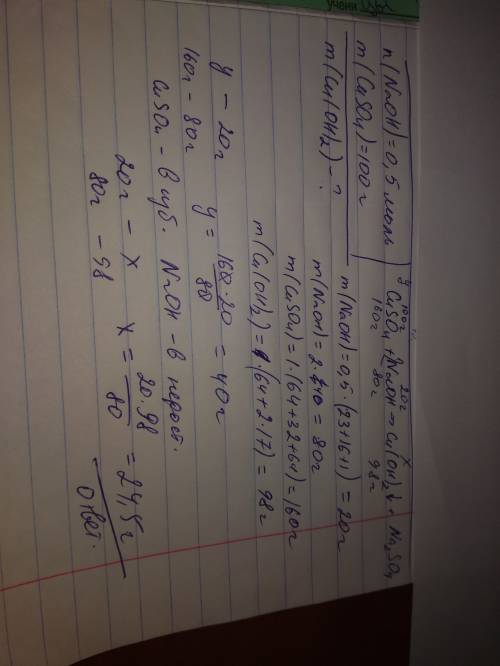 учени
n(NaOH)=0,5 моль
m(CuSO₄)=100г
m(Cu(OH)₂) - ?
y 100г 20г x
CuSO₄ + 2NaOH → Cu(OH)₂↓ + Na₂SO₄
160г 80г 98г
m(NaOH)=0,5·(23+16+1)=20г
m(NaOH)=2·40=80г
m(CuSO₄)=1·(64+32+64)=160г
m(Cu(OH)₂)=1·(64+2·17)=98г
y - 20г
160г - 80г
y = 160·20 / 80 = 40г
CuSO₄ - в изб. NaOH - в недост.
20г - x
80г - 98
x = 20·98 / 80 = 24,5г
Ответ.